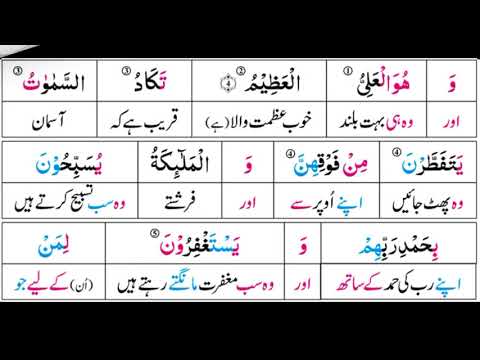 وَ هُوَالْعَلِیُّ ① الْعَظِیْمُ ② ﴿۴﴾ تَكَادُ ③ السَّمٰوٰتُ ③
اور وہ ہی بہت بلند خوب عظمت والا (ہے) قریب ہے کہ آسمان
یَتَفَطَّرْنَ ④ مِنْ فَوْقِهِنَّ ④ وَ الْمَلٰٓىِٕكَةُ یُسَبِّحُوْنَ
وہ پھٹ جائیں اپنے اُوپر سے اور فرشتے وہ سب تسبیح کرتے ہیں
بِحَمْدِرَبِّهِمْ وَ یَسْتَغْفِرُوْنَ ⑤ لِمَنْ
اپنے رب کی حمد کے ساتھ اور وہ سب مغفرت مانگتے رہتے ہیں (اُن) کے لیے جو